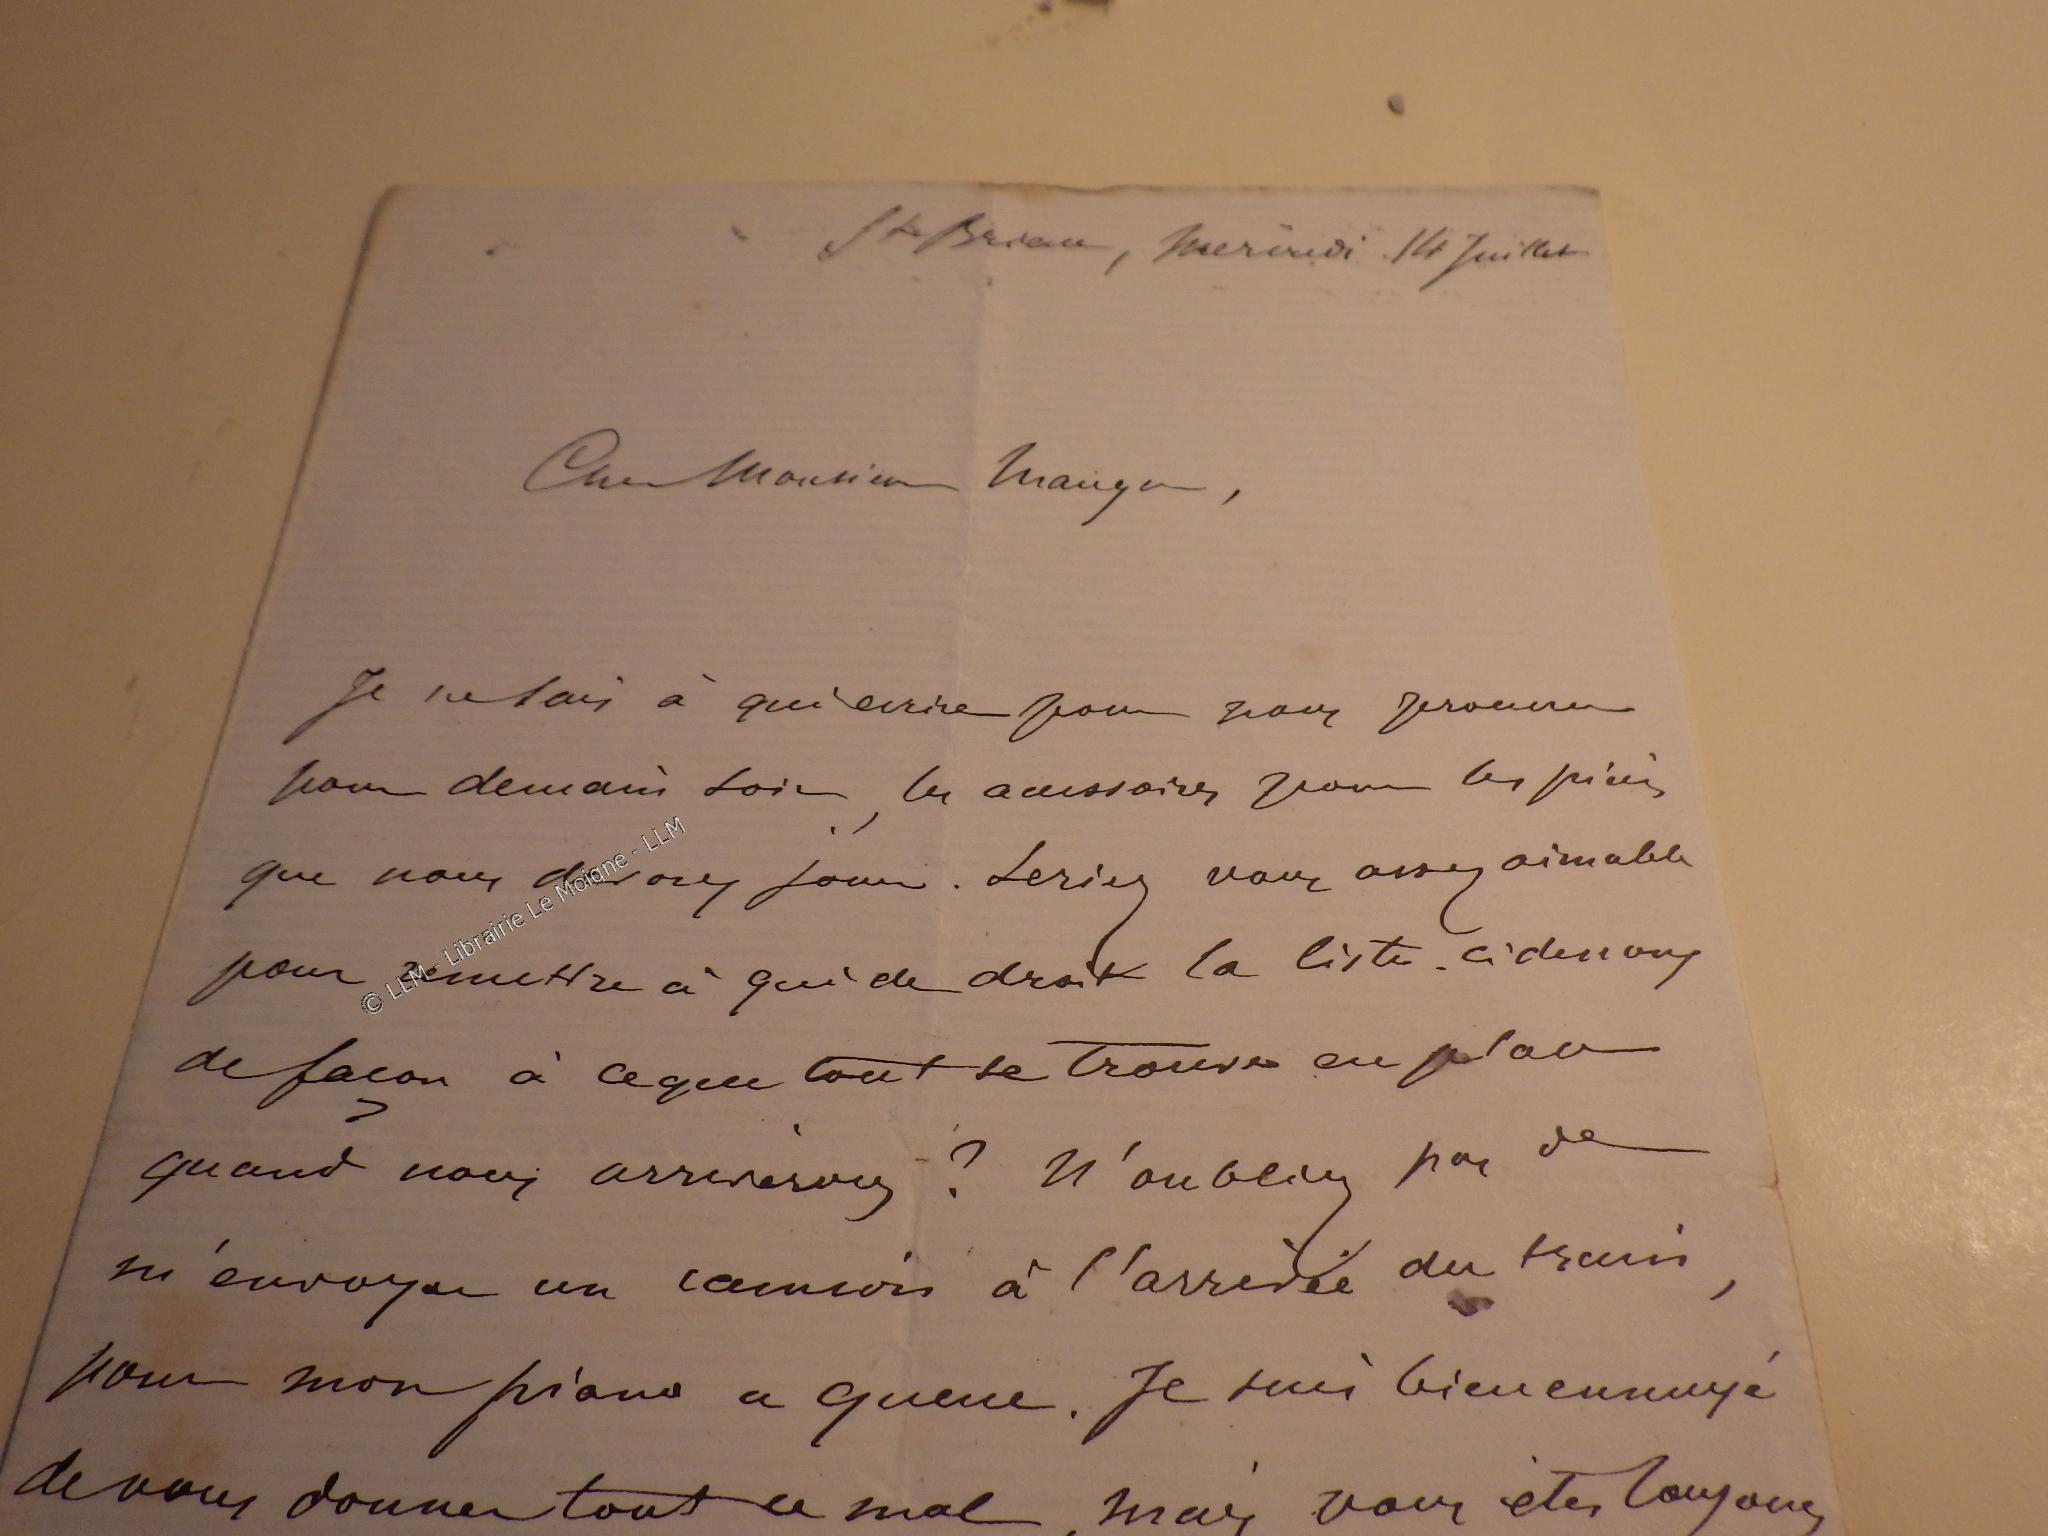 St Brieuc, Mercredi 14 Juillet
Cher Monsieur Mauger,
Je ne sais à qui écrire pour nous procurer
pour demain soir, les accessoires pour les pièces
que nous devons jouer. Seriez vous assez aimable
pour remettre à qui de droit la liste ci dessous
de façon à ce que tout se trouve en place
quand nous arriverons ? N'oubliez pas de
m'envoyer un camion à l'arrivée du train,
pour mon piano a queue. Je suis bien ennuyé
de vous donner tout ce mal, mais vous êtes toujours
© LLM - Librairie Le Moigne - LLM